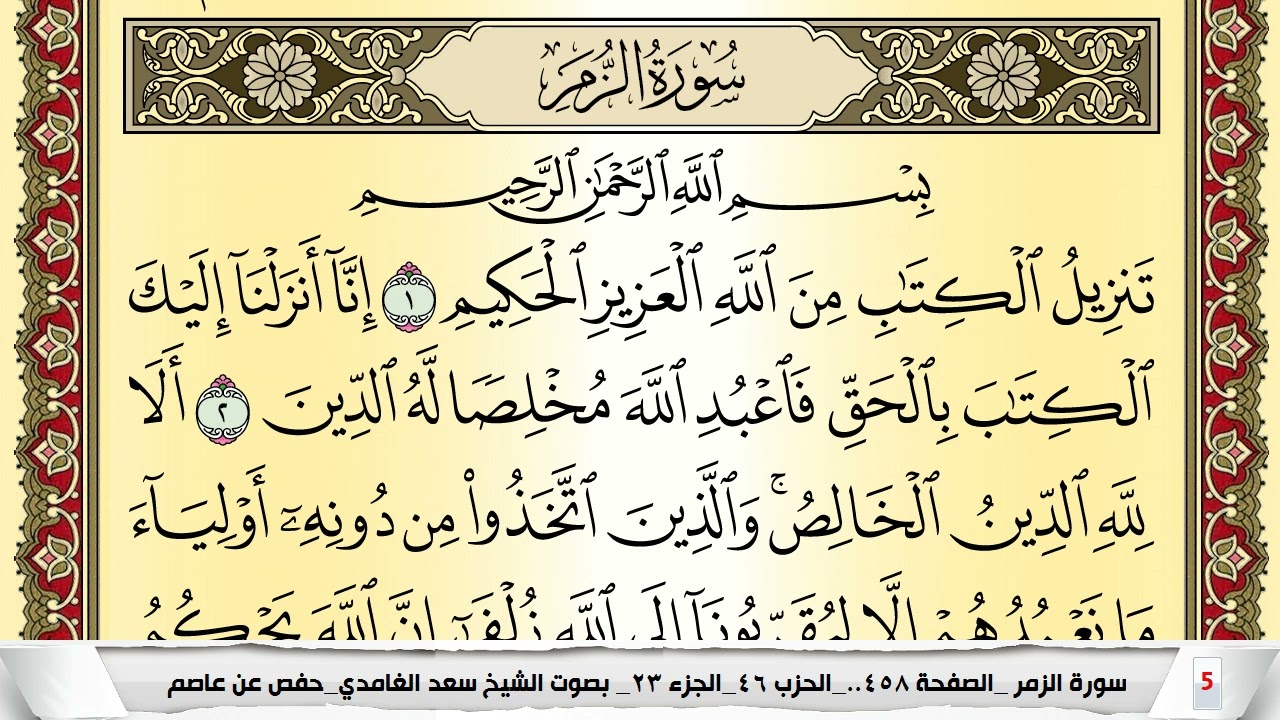 سُورَةُ الزُّمَرِ
بِسْمِ ٱللَّهِ ٱلرَّحْمَٰنِ ٱلرَّحِيمِ
تَنزِيلُ ٱلْكِتَٰبِ مِنَ ٱللَّهِ ٱلْعَزِيزِ ٱلْحَكِيمِ ١ إِنَّآ أَنزَلْنَآ إِلَيْكَ
ٱلْكِتَٰبَ بِٱلْحَقِّ فَٱعْبُدِ ٱللَّهَ مُخْلِصًا لَّهُ ٱلدِّينَ ٢ أَلَا
لِلَّهِ ٱلدِّينُ ٱلْخَالِصُ ۚ وَٱلَّذِينَ ٱتَّخَذُوا۟ مِن دُونِهِۦٓ أَوْلِيَآءَ
مَا نَعْبُدُهُمْ إِلَّا لِيُقَرِّبُونَآ إِلَى ٱللَّهِ زُلْفَىٰٓ إِنَّ ٱللَّهَ يَحْكُمُ
سورة الزمر _الصفحة ٤٥٨.._الحزب ٤٦_الجزء ٢٣_ بصوت الشيخ سعد الغامدي_حفص عن عاصم
5